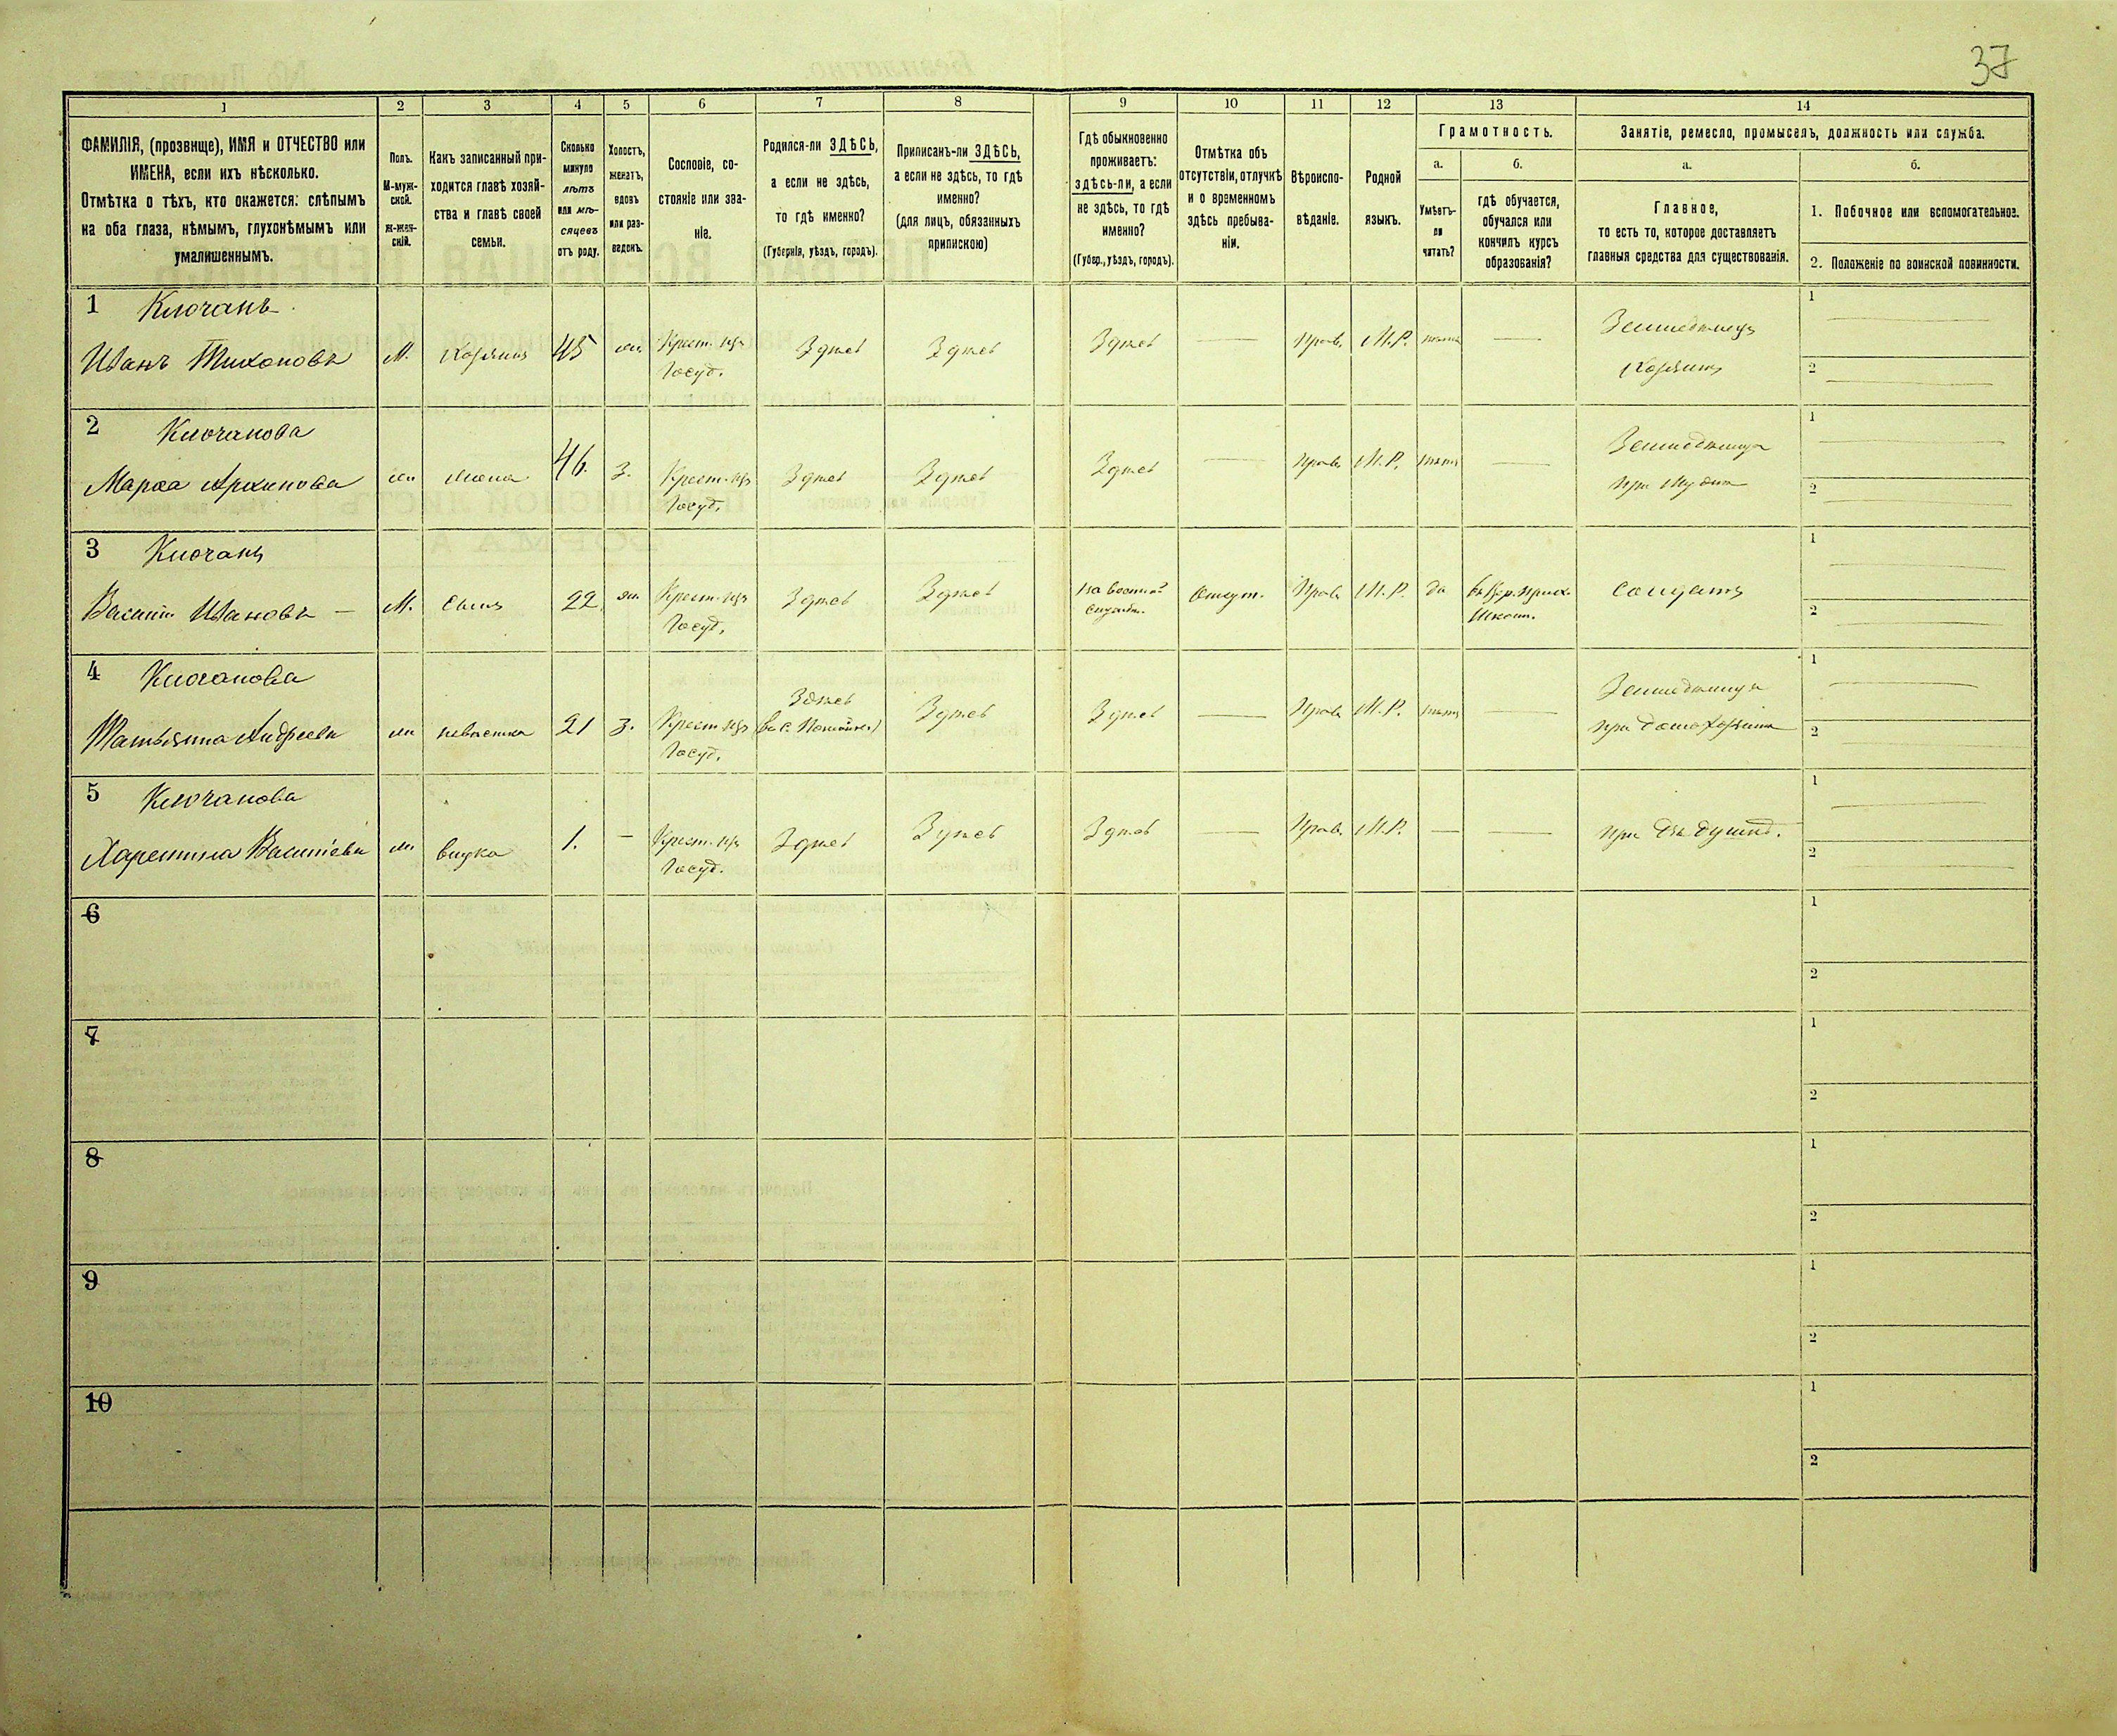 37
1 2 3 4 5 6 7 8 9 10 11 12 13 14
ФАМИЛІЯ, (прозвище), ИМЯ и ОТЧЕСТВО или
ИМЕНА, если ихъ нѣсколько.
Отмѣтка о тѣхъ, кто окажется: слѣпымъ
на оба глаза, нѣмымъ, глухонѣмымъ или
умалишеннымъ.
Полъ.
М-муж-
ской.
ж-жен-
скій.
Какъ записанный при-
ходится главѣ хозяй-
ства и главѣ своей
семьи.
Сколько
минуло
лѣтъ
или мѣ-
сяцевъ
отъ роду.
Холостъ,
женатъ,
вдовъ
или раз-
веденъ.
Сословіе, со-
стояніе или зва-
ніе.
Родился-ли ЗДѢСЬ,
а если не здѣсь,
то гдѣ именно?
(Губернія, уѣздъ, городъ).
Приписанъ-ли ЗДѢСЬ,
а если не здѣсь, то гдѣ
именно?
(для лицъ, обязанныхъ
припискою)
Гдѣ обыкновенно
проживаетъ:
здѣсь-ли, а если
не здѣсь, то гдѣ
именно?
(Губер., уѣздъ, городъ).
Отмѣтка объ
отсутствіи, отлучкѣ
и о временномъ
здѣсь пребыва-
ніи.
Вѣроиспо-
вѣданіе.
Родной
языкъ.
Грамотность.
а.
Умѣетъ-
ли
читать?
б.
гдѣ обучается,
обучался или
кончилъ курсъ
образованія?
Занятіе, ремесло, промыселъ, должность или служба.
а.
Главное,
то есть то, которое доставляетъ
главныя средства для существованія.
б.
1. Побочное или вспомогательное.
2. Положеніе по воинской повинности.
1 Ключанъ
Иванъ Тихоновъ М. Хозяинъ 45 ж. Крест. изъ Госуд. Здѣсь Здѣсь Здѣсь — Прав. М.Р. нѣтъ — Земледѣлецъ Хозяинъ 1 — 2 —
2 Ключанова
Марѳа Архипова ж жена 46. З. Крест. изъ Госуд. Здѣсь Здѣсь Здѣсь — Прав. М.Р. нѣтъ — Земледѣлица при мужѣ 1 — 2 —
3 Ключанъ
Василій Ивановъ — М. Сынъ 22 ж. Крест. изъ Госуд. Здѣсь Здѣсь На военной службѣ. Отсут. Прав. М.Р. да школ. Солдатъ 1 — 2 —
4 Ключанова
Татьяна Андреева ж невѣстка 21 З. Крест. изъ Госуд. Здѣсь Здѣсь Здѣсь — Прав. М.Р. нѣтъ — Земледѣлица при домохозяинѣ 1 — 2 —
5 Ключанова
Харитина Васильева ж внука 1. — Крест. изъ Госуд. Здѣсь Здѣсь Здѣсь — Прав. М.Р. — — при дѣдушкѣ. 1 — 2 —
6 1
2
7 1
2
8 1
2
9 1
2
10 1
2